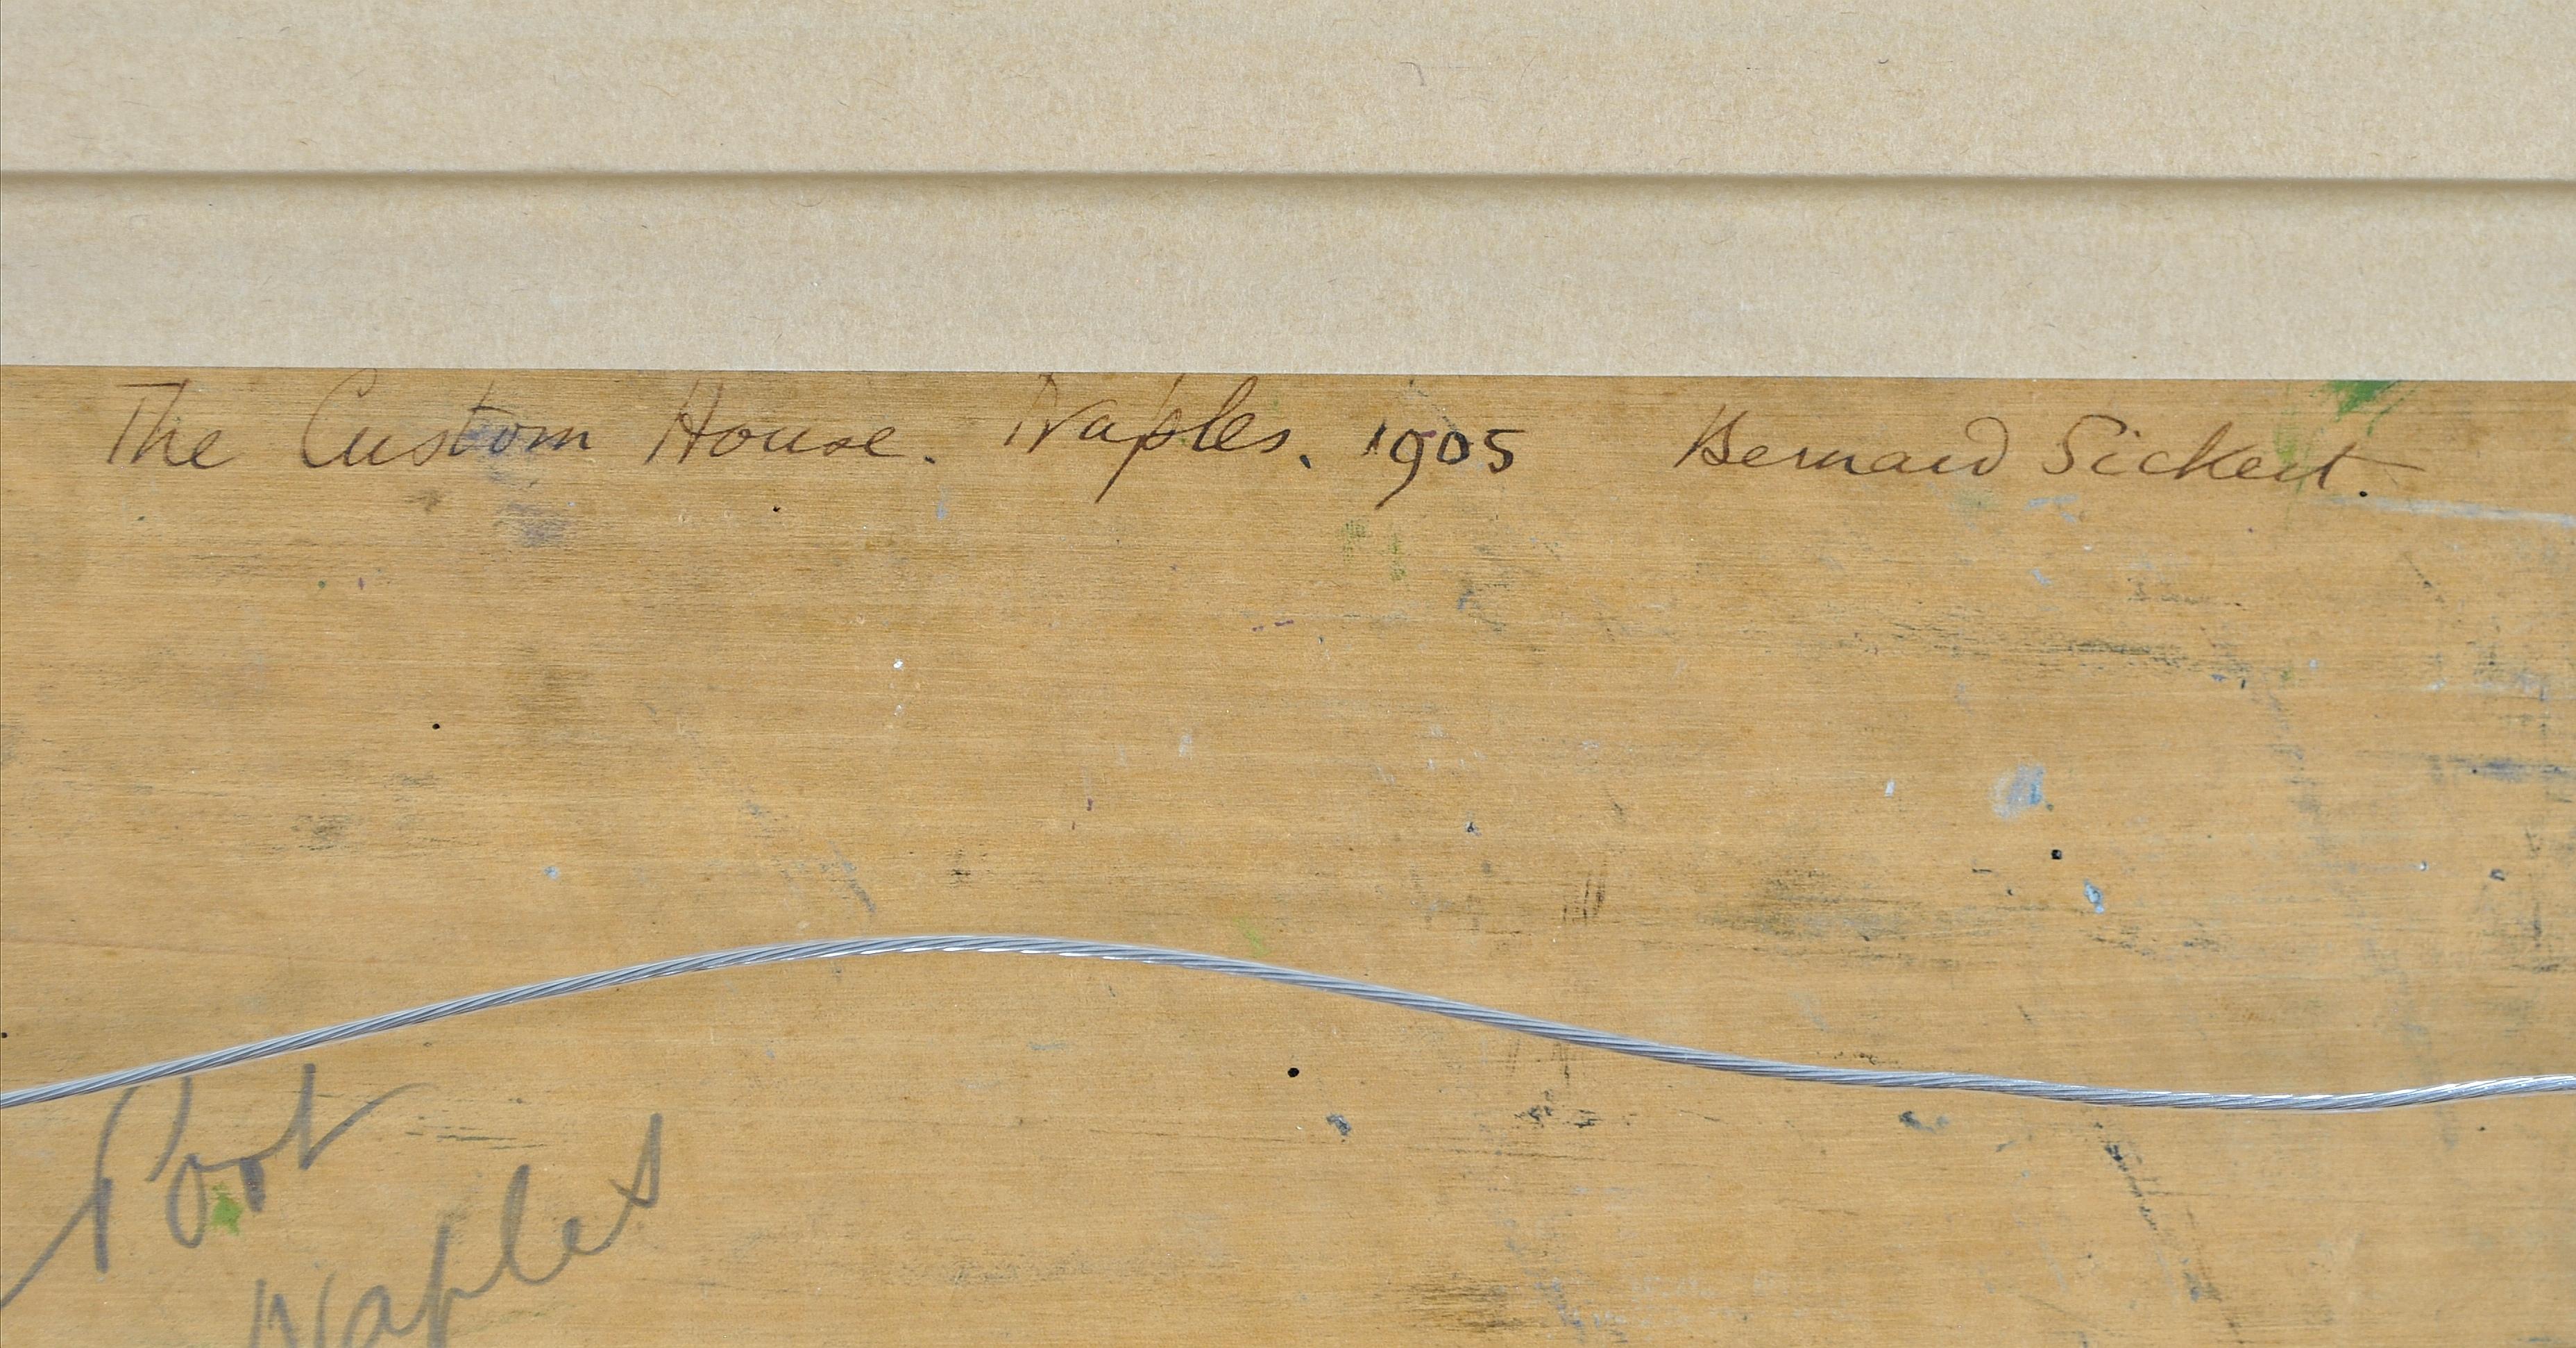 The Custom House. Naples. 1905 Bernard Sickert.
Port
Naples